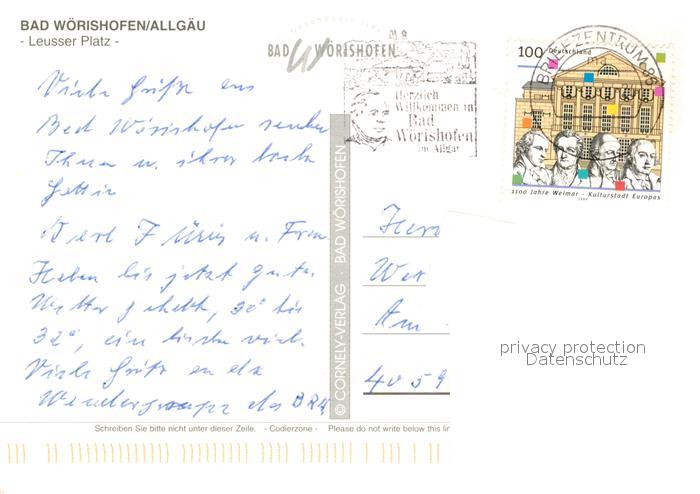 BAD WÖRISHOFEN/ALLGÄU
- Leusser Platz -
Viele Grüße aus
Bad Wörishofen senden
Ihnen u. ihrer lieben
Gattin
u. Frau
Haben bis jetzt gutes
Wetter gehabt, 30° bis
32°, ein bischen viel.
Viele Grüße an die
Wandergruppe des BRK
BAD WÖRISHOFEN
Herzlich
Willkommen in
Bad
Wörishofen
im Allgäu
100 Deutschland
BRIEFZENTRUM 86
1100 Jahre Weimar - Kulturstadt Europas
1999
© CORNELY-VERLAG · BAD WÖRISHOFEN
Herr
Am
privacy protection
Datenschutz
Schreiben Sie bitte nicht unter dieser Zeile. - Codierzone - Please do not write below this lin